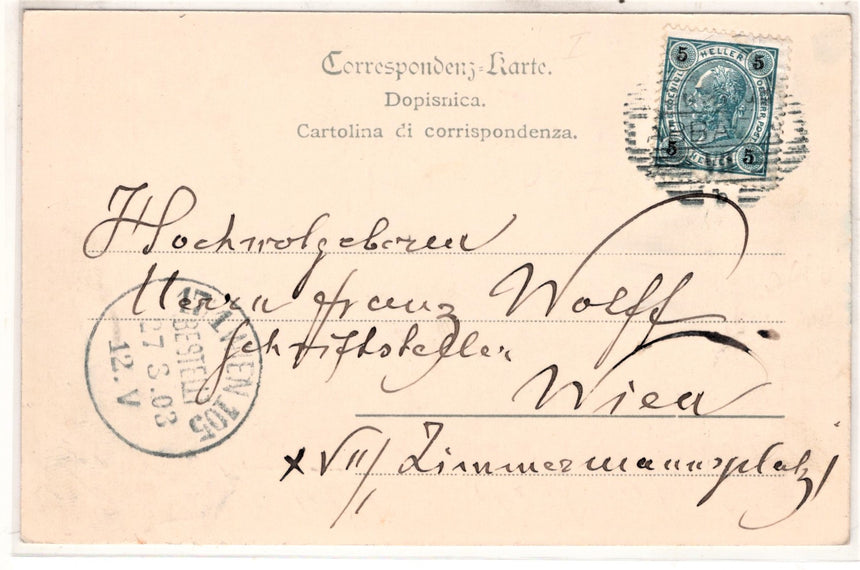 Correspondenz-Karte.
Dopisnica.
Cartolina di corrispondenza.
5 HELLER 5
5 5
Hochwolgeboren
Herrn Franz Wolff
Schriftsteller
Wien
XVII/, Zimmermannsplatz 1
17/1 WIEN 105
BESTELLT
27.3.03
12.V